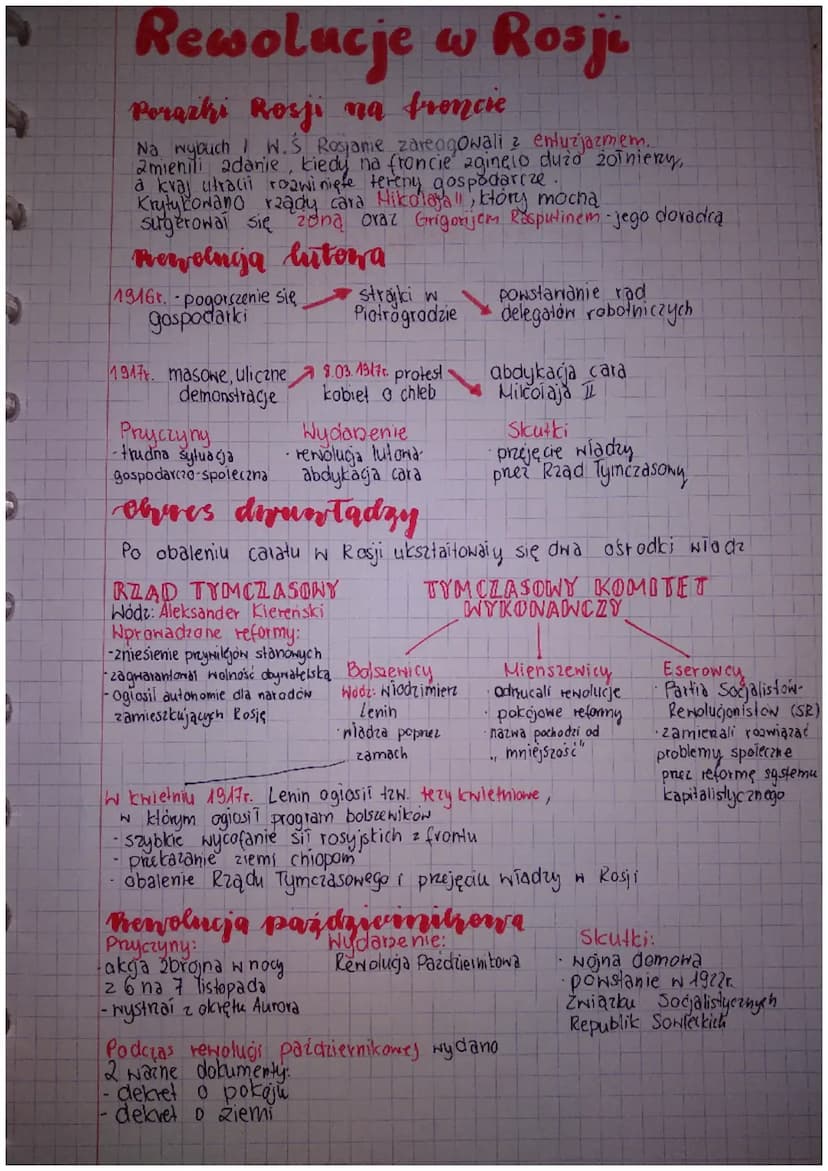 Rewolucje w Rosji
Porażki Rosji na froncie
Na wybuch I W.Ś Rosjanie zareagowali z entuzjazmem.
Zmienili zdanie, kiedy na froncie zginęło dużo żołnierzy,
a kraj utracił rozwinięte tereny gospodarcze.
Krytykowano rządy cara Mikołaja II, który mocna
sugerował się żoną oraz Grigorijem Rasputinem - jego doradcą
Rewolucja lutowa
1916r. - pogorszenie się strajki w powstawanie rad
gospodarki Piotrogrodzie delegatów robotniczych
1917r. masowe, uliczne 8.03.1917r. protest abdykacja cara
demonstracje kobiet o chleb Mikołaja II
Przyczyny Wydarzenie Skutki
- trudna sytuacja · rewolucja lutowa · przejęcie władzy
gospodarczo-społeczna abdykacja cara przez Rząd Tymczasowy
Okres dwuwładzy
Po obaleniu caratu w Rosji ukształtowały się dwa ośrodki władz
RZĄD TYMCZASOWY TYMCZASOWY KOMITET
Wódz: Aleksander Kiereński WYKONAWCZY
Wprowadzone reformy:
- zniesienie przywilejów stanowych
- zagwarantował wolność obywatelską
- ogłosił autonomie dla narodów
zamieszkujących Rosję
Bolszewicy
Wódz: Włodzimierz
Lenin
· władza poprzez
zamach
Mienszewicy
· odrzucali rewolucje
· pokojowe reformy
· nazwa pochodzi od
„mniejszość"
Eserowcy
· Partia Socjalistów-
Rewolucjonistów (SR)
· zamierzali rozwiązać
problemy społeczne
przez reformę systemu
kapitalistycznego
W kwietniu 1917r. Lenin ogłosił tzw. tezy kwietniowe,
w którym ogłosił program bolszewików
- szybkie wycofanie sił rosyjskich z frontu
- przekazanie ziemi chłopom
- obalenie Rządu Tymczasowego i przejęciu władzy w Rosji
Rewolucja październikowa
Przyczyny: Wydarzenie: Skutki:
- akcja zbrojna w nocy Rewolucja Październikowa · wojna domowa
z 6 na 7 listopada · powstanie w 1922r.
- wystrzał z okrętu Aurora Związku Socjalistycznych
Republik Sowieckich
Podczas rewolucji październikowej wydano
2 ważne dokumenty:
- dekret o pokoju
- dekret o ziemi